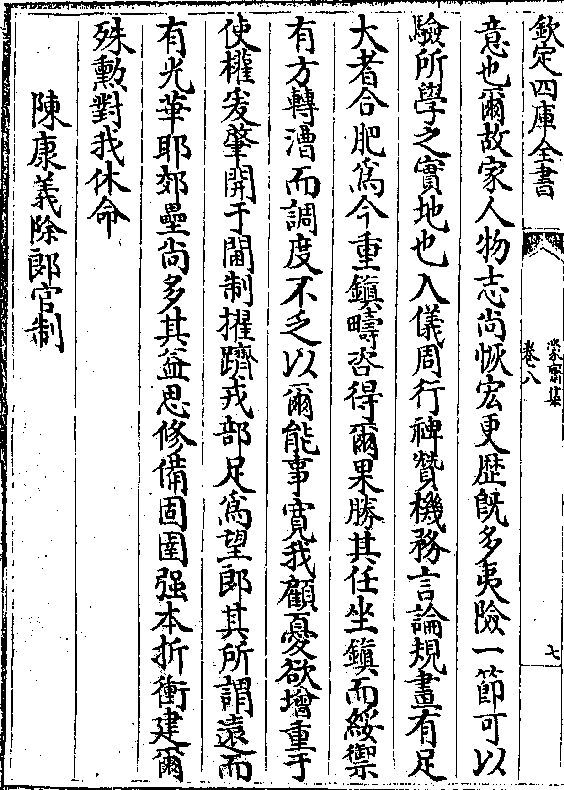 欽定四庫全書
蒙齋集
卷八
七
意也爾故家人物志尚恢宏更歴既多夷險一節可以
驗所學之實地也入儀周行裨贊機務言論規畫有足
大者合肥爲今重鎮疇咨得爾果勝其任坐鎮而綏禦
有方轉漕而調度不乏以爾能事寛我顧憂欲增重于
使權爰肇開于閫制擢躋戎部足爲望郎其所謂遠而
有光華耶郊壘尚多其益思修備固圉强本折衝建爾
殊勲對我休命
陳康義除郎官制